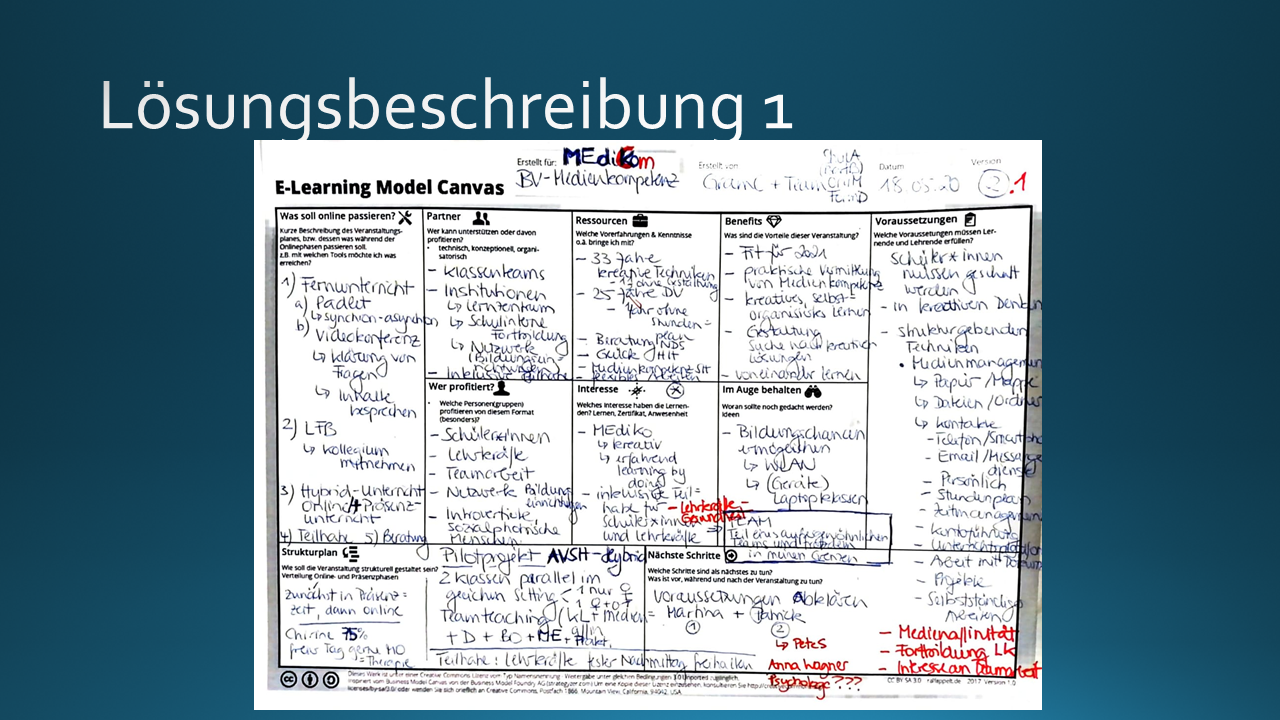 Lösungsbeschreibung 1
Erstellt für: MEdiKom
BV-Medienkompetenz
Erstellt von:
Datum
18.05.20
Version
2.1
E-Learning Model Canvas
Was soll online passieren?
Kurze Beschreibung des Veranstaltungs-
planes, bzw. dessen was während der
Onlinephasen passieren soll.
z.B. mit welchen Tools möchte ich was
erreichen?
1) Fernunterricht
a) Padlet
↳ synchron-asynchron
b) Videokonferenz
↳ Klärung von
Fragen
↳ Inhalte
besprechen
2) LFB
↳ Kollegium
mitnehmen
3) Hybrid-Unterricht
Online/Präsenz-
unterricht
4) Teilhabe 5) Beratung
Partner
Wer kann unterstützen oder davon
profitieren?
• technisch, konzeptionell, organi-
satorisch
- Klassenteams
- Institutionen
↳ Lernzentrum
↳ Schulinterne
Fortbildung
↳ Netzwerke
(Bildungsein-
richtungen)
Ressourcen
Welche Vorerfahrungen & Kenntnisse
o.ä. bringe ich mit?
- 33 Jahre
kreative Techniken
- 25 Jahre DV
- Jahr ohne
Stunden=
plan
- Beratung NDS
- Quick HIT
Benefits
Was sind die Vorteile dieser Veranstaltung?
- Fit für 2021
- praktische Vermittlung
von Medienkompetenz
- kreatives, selbst=
organisiertes Lernen
- Gestaltung
Suche nach kreativen
Lösungen
- voneinander lernen
Voraussetzungen
Welche Voraussetzungen müssen Ler-
nende und Lehrende erfüllen?
Schüler*innen
müssen geschult
werden
- in kreativen Denken
- strukturgebenden
Techniken
• Medienmanagement
↳ Papier/Mappe
↳ Dateien/Ordner
↳ Kontakte
- Telefon/Smartpho
- Email/Messenge
dienste
- Persönlich
- Stundenplan
- Zeitmanagement
- Kontoführung
- Arbeit mit
- Projekte
- Selbstständiges
Arbeiten
- Medienaffinität
- Fortbildung LK
- Interesse an Teamarbeit
Wer profitiert?
• Welche Personen(gruppen)
profitieren von diesem Format
(besonders)?
- Schüler*innen
- Lehrkräfte
- Teamarbeit
- Netzwerke Bildungs
einrichtungen
- Introvertierte,
sozialphobische
Menschen
Interesse
Welches Interesse haben die Lernen-
den? Lernen, Zertifikat, Anwesenheit
- MEdiko
↳ kreativ
↳ erfahrend
learning by
doing
- inklusive Teil=
habe für
Schüler*innen
und Lehrkräfte
- Lehrkräfte-
Gesundheit
Im Auge behalten
Woran sollte noch gedacht werden?
Ideen
- Bildungschancen
ermöglichen
↳ WLAN
↳ (Geräte)
Laptopklassen
TEAM
Teil eines außergewöhnlichen
Teams und trotzdem
in meinen Grenzen
Strukturplan
Wie soll die Veranstaltung strukturell gestaltet sein?
Verteilung Online- und Präsenzphasen
zunächst in Präsenz=
zeit, dann online
75%
freier Tag gerne MO
= Therapie
Pilotprojekt AVSH-Hybrid
2 Klassen parallel im
gleichen Setting < 1 nur ♀
1 ♀+♂
Teamteaching (KL + Medien=
+ D + BO + ME +
Teilhabe: Lehrkräfte fester Nachmittag freihalten
Nächste Schritte
Welche Schritte sind als nächstes zu tun?
Was ist vor, während und nach der Veranstaltung zu tun?
Voraussetzungen Abklären
= Martina + Patricke
1 2
↳ PetcS
Anna Wagner
Psychologe ???
Dieses Werk ist unter einer Creative Commons Lizenz vom Typ Namensnennung - Weitergabe unter gleichen Bedingungen 3.0 Unported zugänglich.
CC BY SA 3.0 2017 Version 1.0